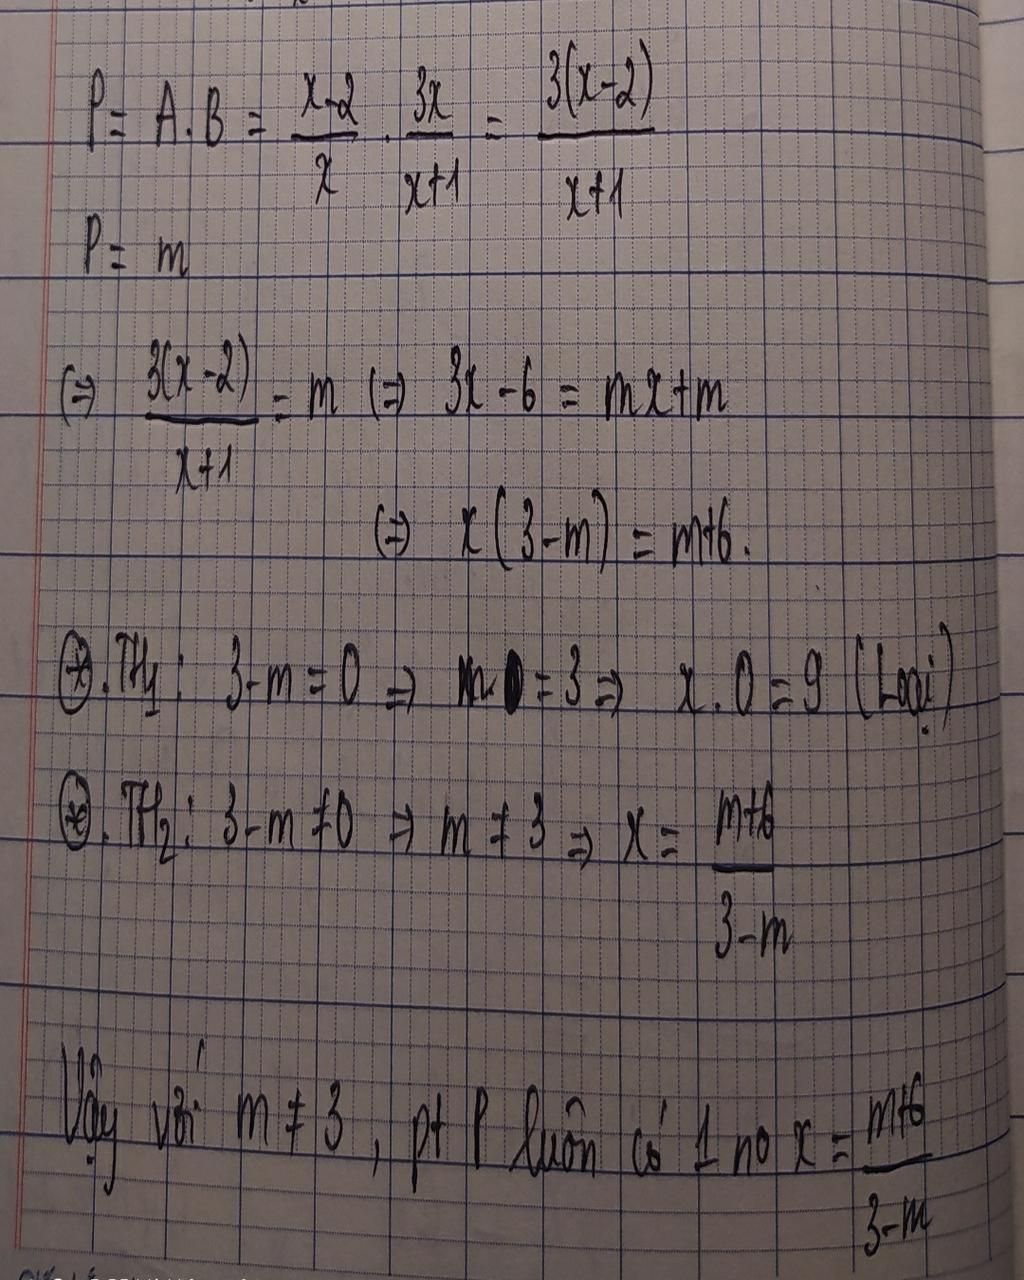 P = A.B = \frac{x-2}{x} . \frac{3x}{x+1} = \frac{3(x-2)}{x+1}
P = m
(=) \frac{3(x-2)}{x+1} = m (=) 3x - 6 = mx+m
(=) x(3-m) = m+6.
⊛. TH1: 3-m = 0 => m = 3 => x.0 = 9 (Loại)
⊛. TH2: 3-m ≠ 0 => m ≠ 3 => x = \frac{m+6}{3-m}
Vậy với m ≠ 3, pt P luôn có 1 no x = \frac{m+6}{3-m}